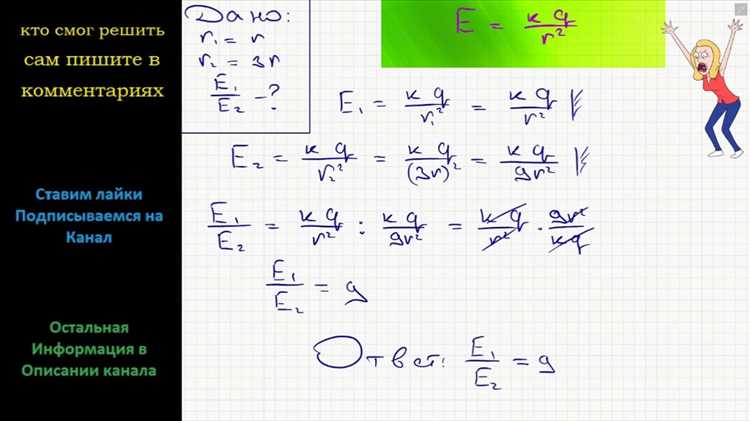 кто смог решить
сам пишите в
комментариях
Ставим лайки
Подписываемся на
Канал
Остальная
Информация в
Описании канала
Дано:
r₁ = r
r₂ = 3r
E₁/E₂ - ?
E = kq/r²
E₁ = kq/r₁² = kq/r²
E₂ = kq/r₂² = kq/(3r)² = kq/9r²
E₁/E₂ = kq/r² : kq/9r² = kq/r² · 9r²/kq
E₁/E₂ = 9
Ответ: E₁/E₂ = 9